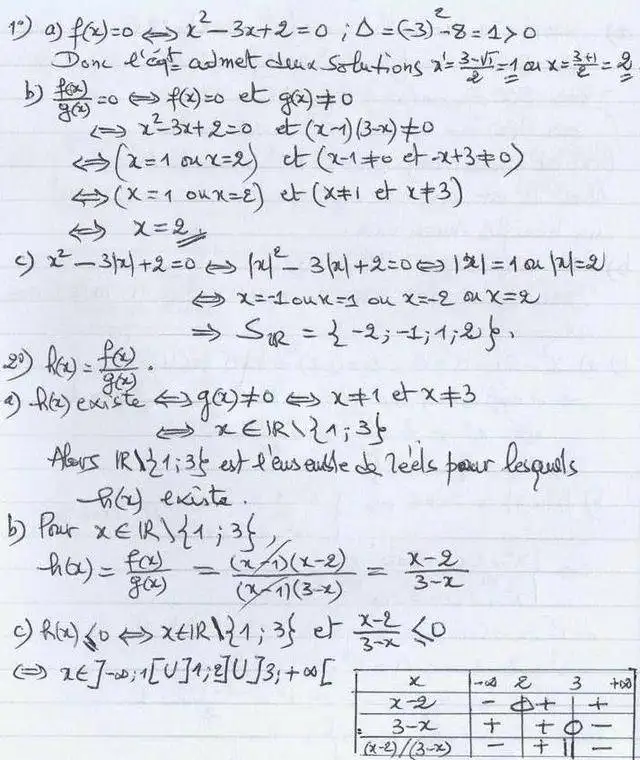 1°) a) f(x)=0 ⟺ x² - 3x + 2 = 0 ; Δ = (-3)² - 8 = 1 > 0
Donc l'éqt° admet deux solutions x' = (3-√1)/2 = 1 ou x = (3+1)/2 = 2
b) f(x)/g(x) = 0 ⟺ f(x)=0 et g(x)≠0
⟺ x² - 3x + 2 = 0 et (x-1)(3-x) ≠ 0
⟺ (x = 1 ou x = 2) et (x-1≠0 et -x+3≠0)
⟺ (x = 1 ou x = 2) et (x≠1 et x≠3)
⟺ x = 2
c) x² - 3|x| + 2 = 0 ⟺ |x|² - 3|x| + 2 = 0 ⟺ |x| = 1 ou |x| = 2
⟺ x = -1 ou x = 1 ou x = -2 ou x = 2
⟹ S_IR = { -2 ; -1 ; 1 ; 2 }.
2°) h(x) = f(x)/g(x) .
a) h(x) existe ⟺ g(x)≠0 ⟺ x≠1 et x≠3
⟺ x ∈ IR\{1 ; 3}
Alors IR\{1 ; 3} est l'ensemble de réels pour lesquels
h(x) existe.
b) Pour x ∈ IR\{1 ; 3},
h(x) = f(x)/g(x) = (x-1)(x-2)/(x-1)(3-x) = (x-2)/(3-x)
c) h(x) ≤ 0 ⟺ x∈IR\{1 ; 3} et (x-2)/(3-x) ≤ 0
⟺ x ∈ ]-∞;1[ U ]1;2] U ]3;+∞[
x -∞ 2 3 +∞
x-2 - 0 + +
3-x + + 0 -
(x-2)/(3-x) - + || -